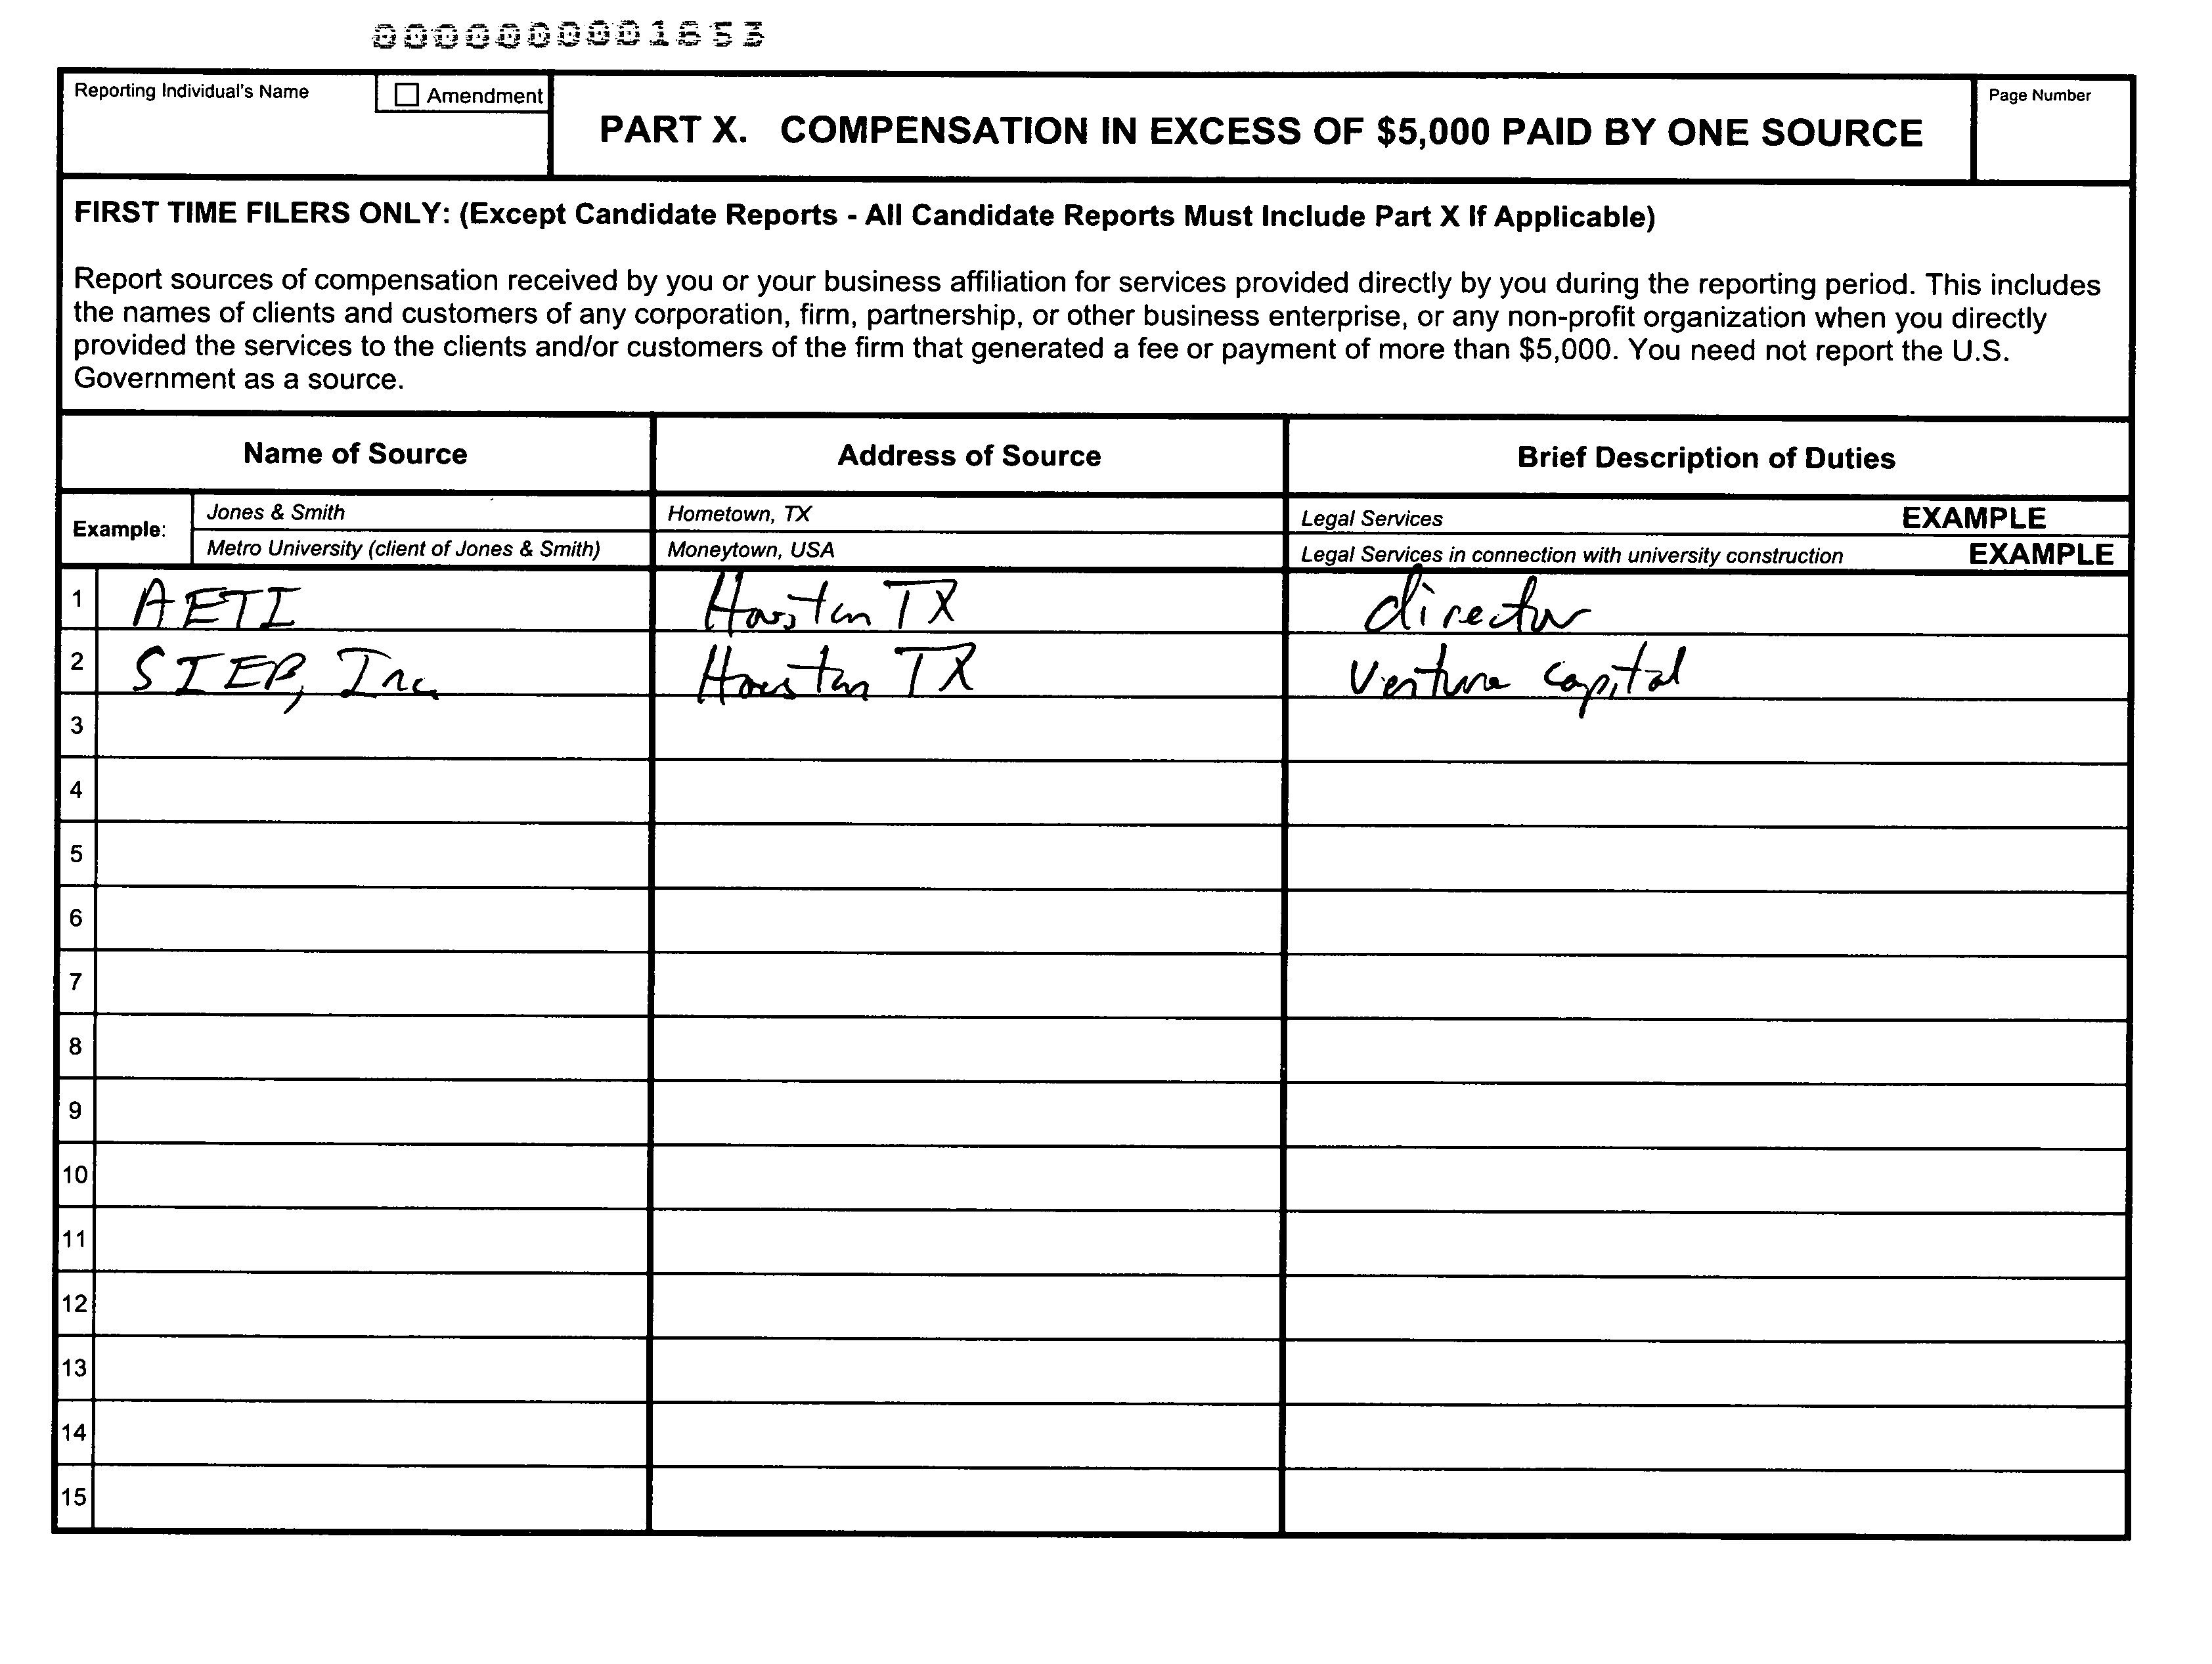 0000000001653
Reporting Individual's Name
Amendment
PART X. COMPENSATION IN EXCESS OF $5,000 PAID BY ONE SOURCE
Page Number
FIRST TIME FILERS ONLY: (Except Candidate Reports - All Candidate Reports Must Include Part X If Applicable)
Report sources of compensation received by you or your business affiliation for services provided directly by you during the reporting period. This includes
the names of clients and customers of any corporation, firm, partnership, or other business enterprise, or any non-profit organization when you directly
provided the services to the clients and/or customers of the firm that generated a fee or payment of more than $5,000. You need not report the U.S.
Government as a source.
Name of Source Address of Source Brief Description of Duties
Example: Jones & Smith Hometown, TX Legal Services EXAMPLE
Metro University (client of Jones & Smith) Moneytown, USA Legal Services in connection with university construction EXAMPLE
1 AETI Houston TX director
2 STEP, Inc Houston TX Venture capital
3
4
5
6
7
8
9
10
11
12
13
14
15